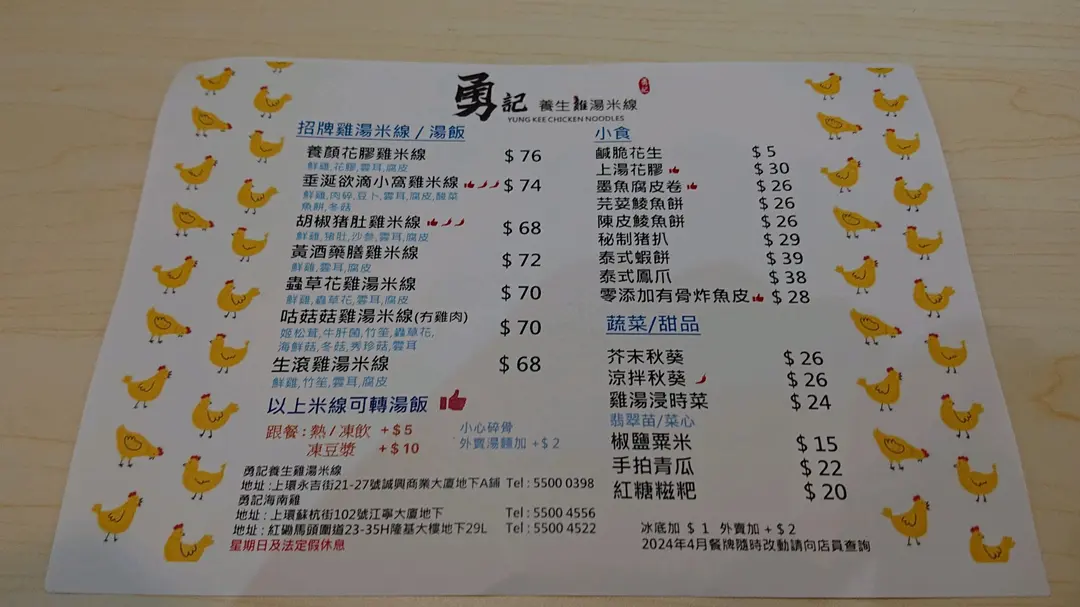 勇記 養生雞湯米線
YUNG KEE CHICKEN NOODLES
招牌雞湯米線 / 湯飯
養顏花膠雞米線 $ 76
鮮雞,花膠,雲耳,腐皮
垂涎欲滴小窩雞米線 $ 74
鮮雞,肉碎,豆卜,雲耳,腐皮,酸菜
魚餅,冬菇
胡椒猪肚雞米線 $ 68
鮮雞,猪肚,沙參,雲耳,腐皮
黃酒藥膳雞米線 $ 72
鮮雞,雲耳,腐皮
蟲草花雞湯米線 $ 70
鮮雞,蟲草花,雲耳,腐皮
咕菇菇雞湯米線(冇雞肉) $ 70
姬松茸,牛肝菌,竹笙,蟲草花,
海鮮菇,冬菇,秀珍菇,雲耳
生滾雞湯米線 $ 68
鮮雞,竹笙,雲耳,腐皮
以上米線可轉湯飯
跟餐: 熱 / 凍飲 + $ 5
凍豆漿 + $ 10
小心碎骨
外賣湯麵加 +$ 2
勇記養生雞湯米線
地址 : 上環永吉街21-27號誠興商業大廈地下A鋪 Tel : 5500 0398
勇記海南雞
地址 : 上環蘇杭街102號江寧大廈地下 Tel : 5500 4556
地址 : 紅磡馬頭圍道23-35H隆基大樓地下29L Tel : 5500 4522
星期日及法定假休息
小食
鹹脆花生 $ 5
上湯花膠 $ 30
墨魚腐皮卷 $ 26
芫荽鯪魚餅 $ 26
陳皮鯪魚餅 $ 26
秘制猪扒 $ 29
泰式蝦餅 $ 39
泰式鳳爪 $ 38
零添加有骨炸魚皮 $ 28
蔬菜/甜品
芥末秋葵 $ 26
涼拌秋葵 $ 26
雞湯浸時菜 $ 24
翡翠苗/菜心
椒鹽粟米 $ 15
手拍青瓜 $ 22
紅糖糍粑 $ 20
冰底加 $ 1 外賣加 + $ 2
2024年4月餐牌隨時改動請向店員查詢